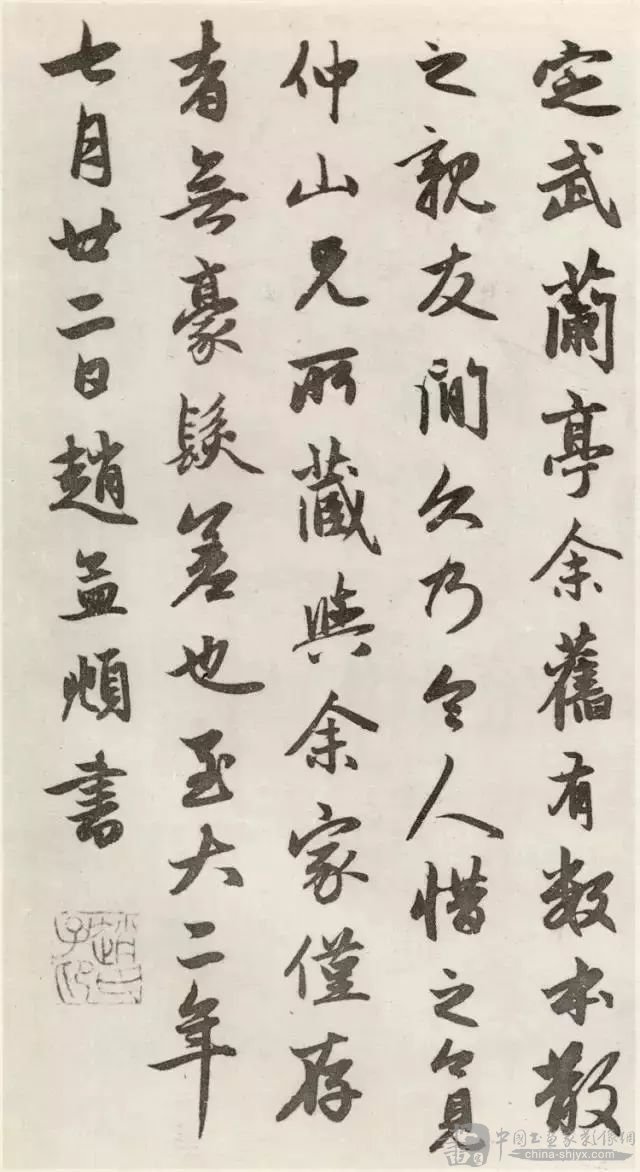 定武蘭亭余舊有數本散
之親友間久乃令人惜之今見
仲山兄所藏與余家僅存
者無豪髮差也至大二年
七月廿二日趙孟頫書
趙氏子昂
中國书画家影像網
china-shjyx.com